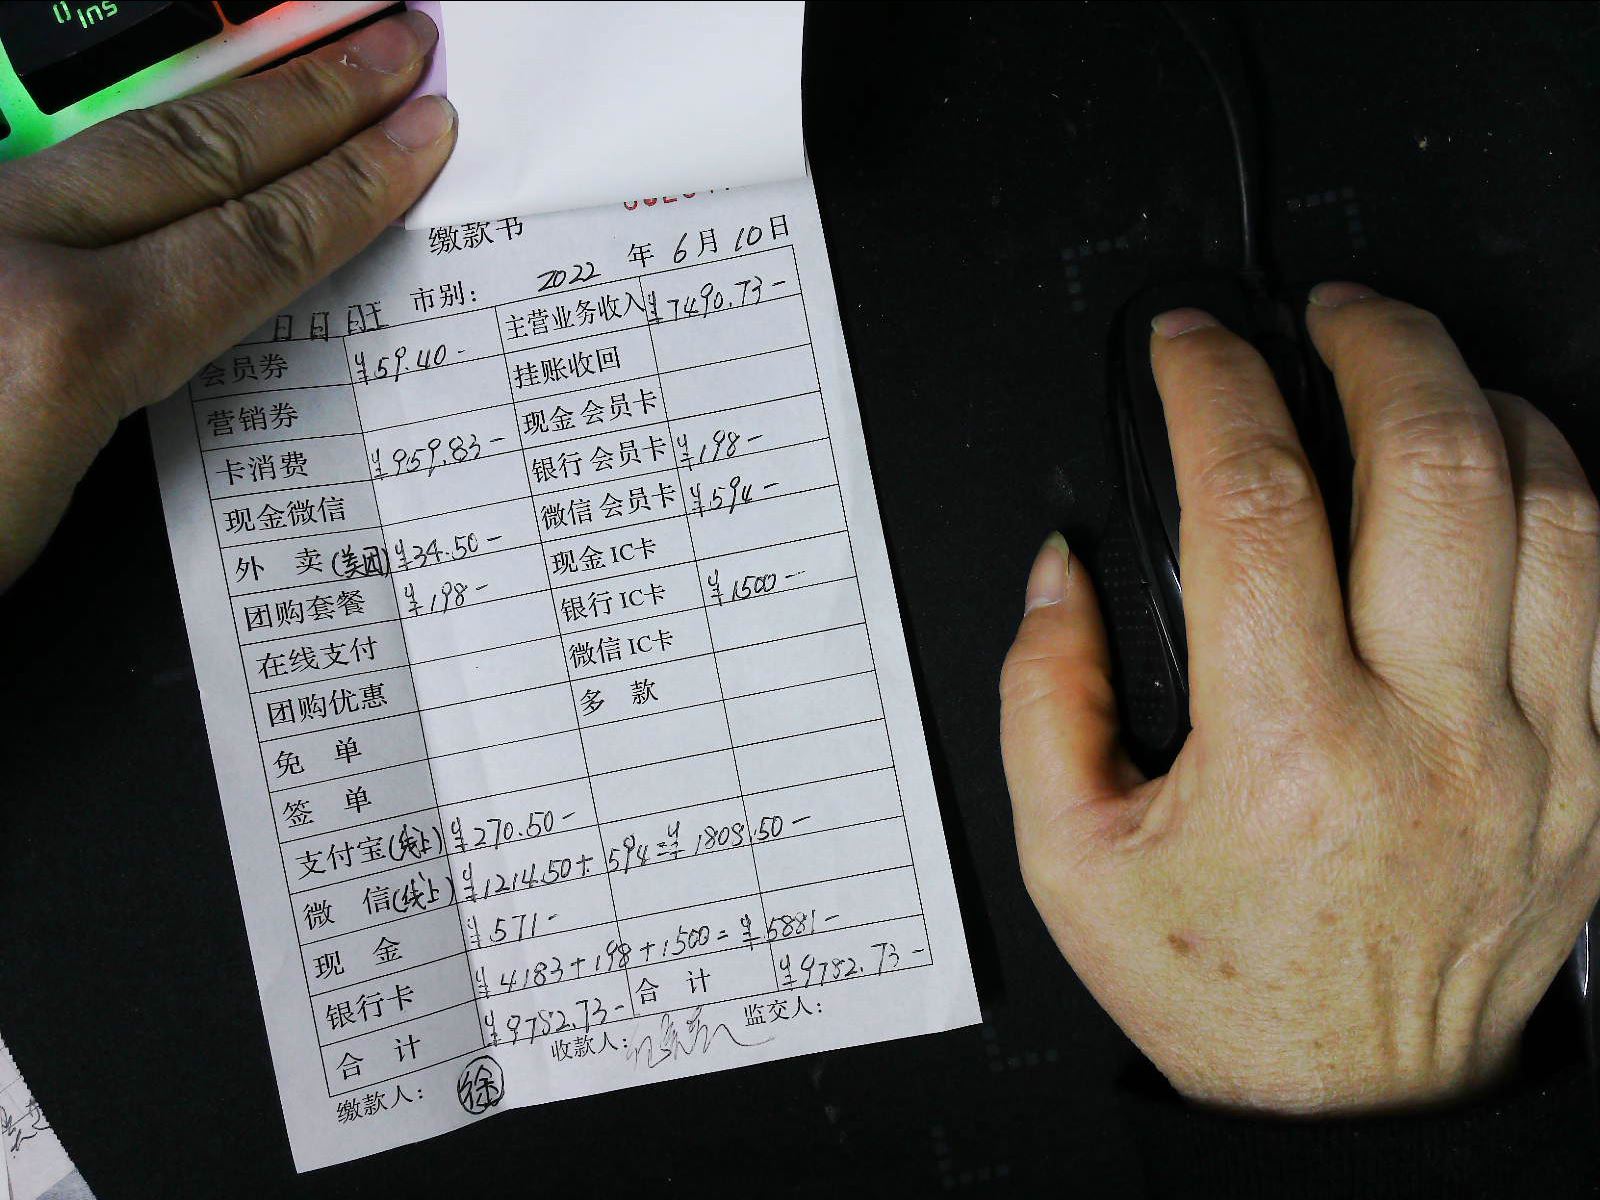 Ins
缴款书
市别： 2022 年 6 月 10 日
会员券 ¥59.40- 主营业务收入 ¥7490.73-
营销券 挂账收回
卡消费 ¥959.83- 现金 会员卡
现金微信 银行 会员卡 ¥198-
外 卖(美团) ¥34.50- 微信 会员卡 ¥594-
团购套餐 ¥198- 现金 IC卡
在线支付 银行 IC卡 ¥1500-
团购优惠 微信 IC卡
免 单 多 款
签 单
支付宝(线上) ¥270.50-
微 信(线上) ¥1214.50+594=¥1808.50-
现 金 ¥571-
银行卡 ¥4183+198+1500=¥5881-
合 计 ¥9782.73- 合 计 ¥9782.73-
缴款人： 徐 收款人： 监交人：